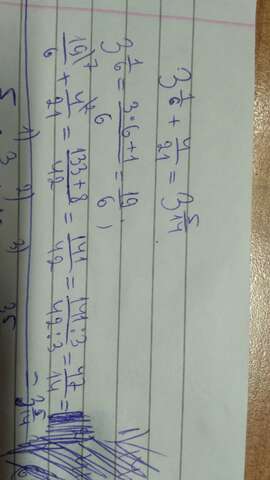 3 1/6 + 4/21 = 3 5/14
3 1/6 = 3·6+1/6 = 19/6;
19\7/6 + 4\2/21 = 133+8/42 = 141/42 = 141:3/42:3 = 47/14 = 3 5/14
1) 2) 3)